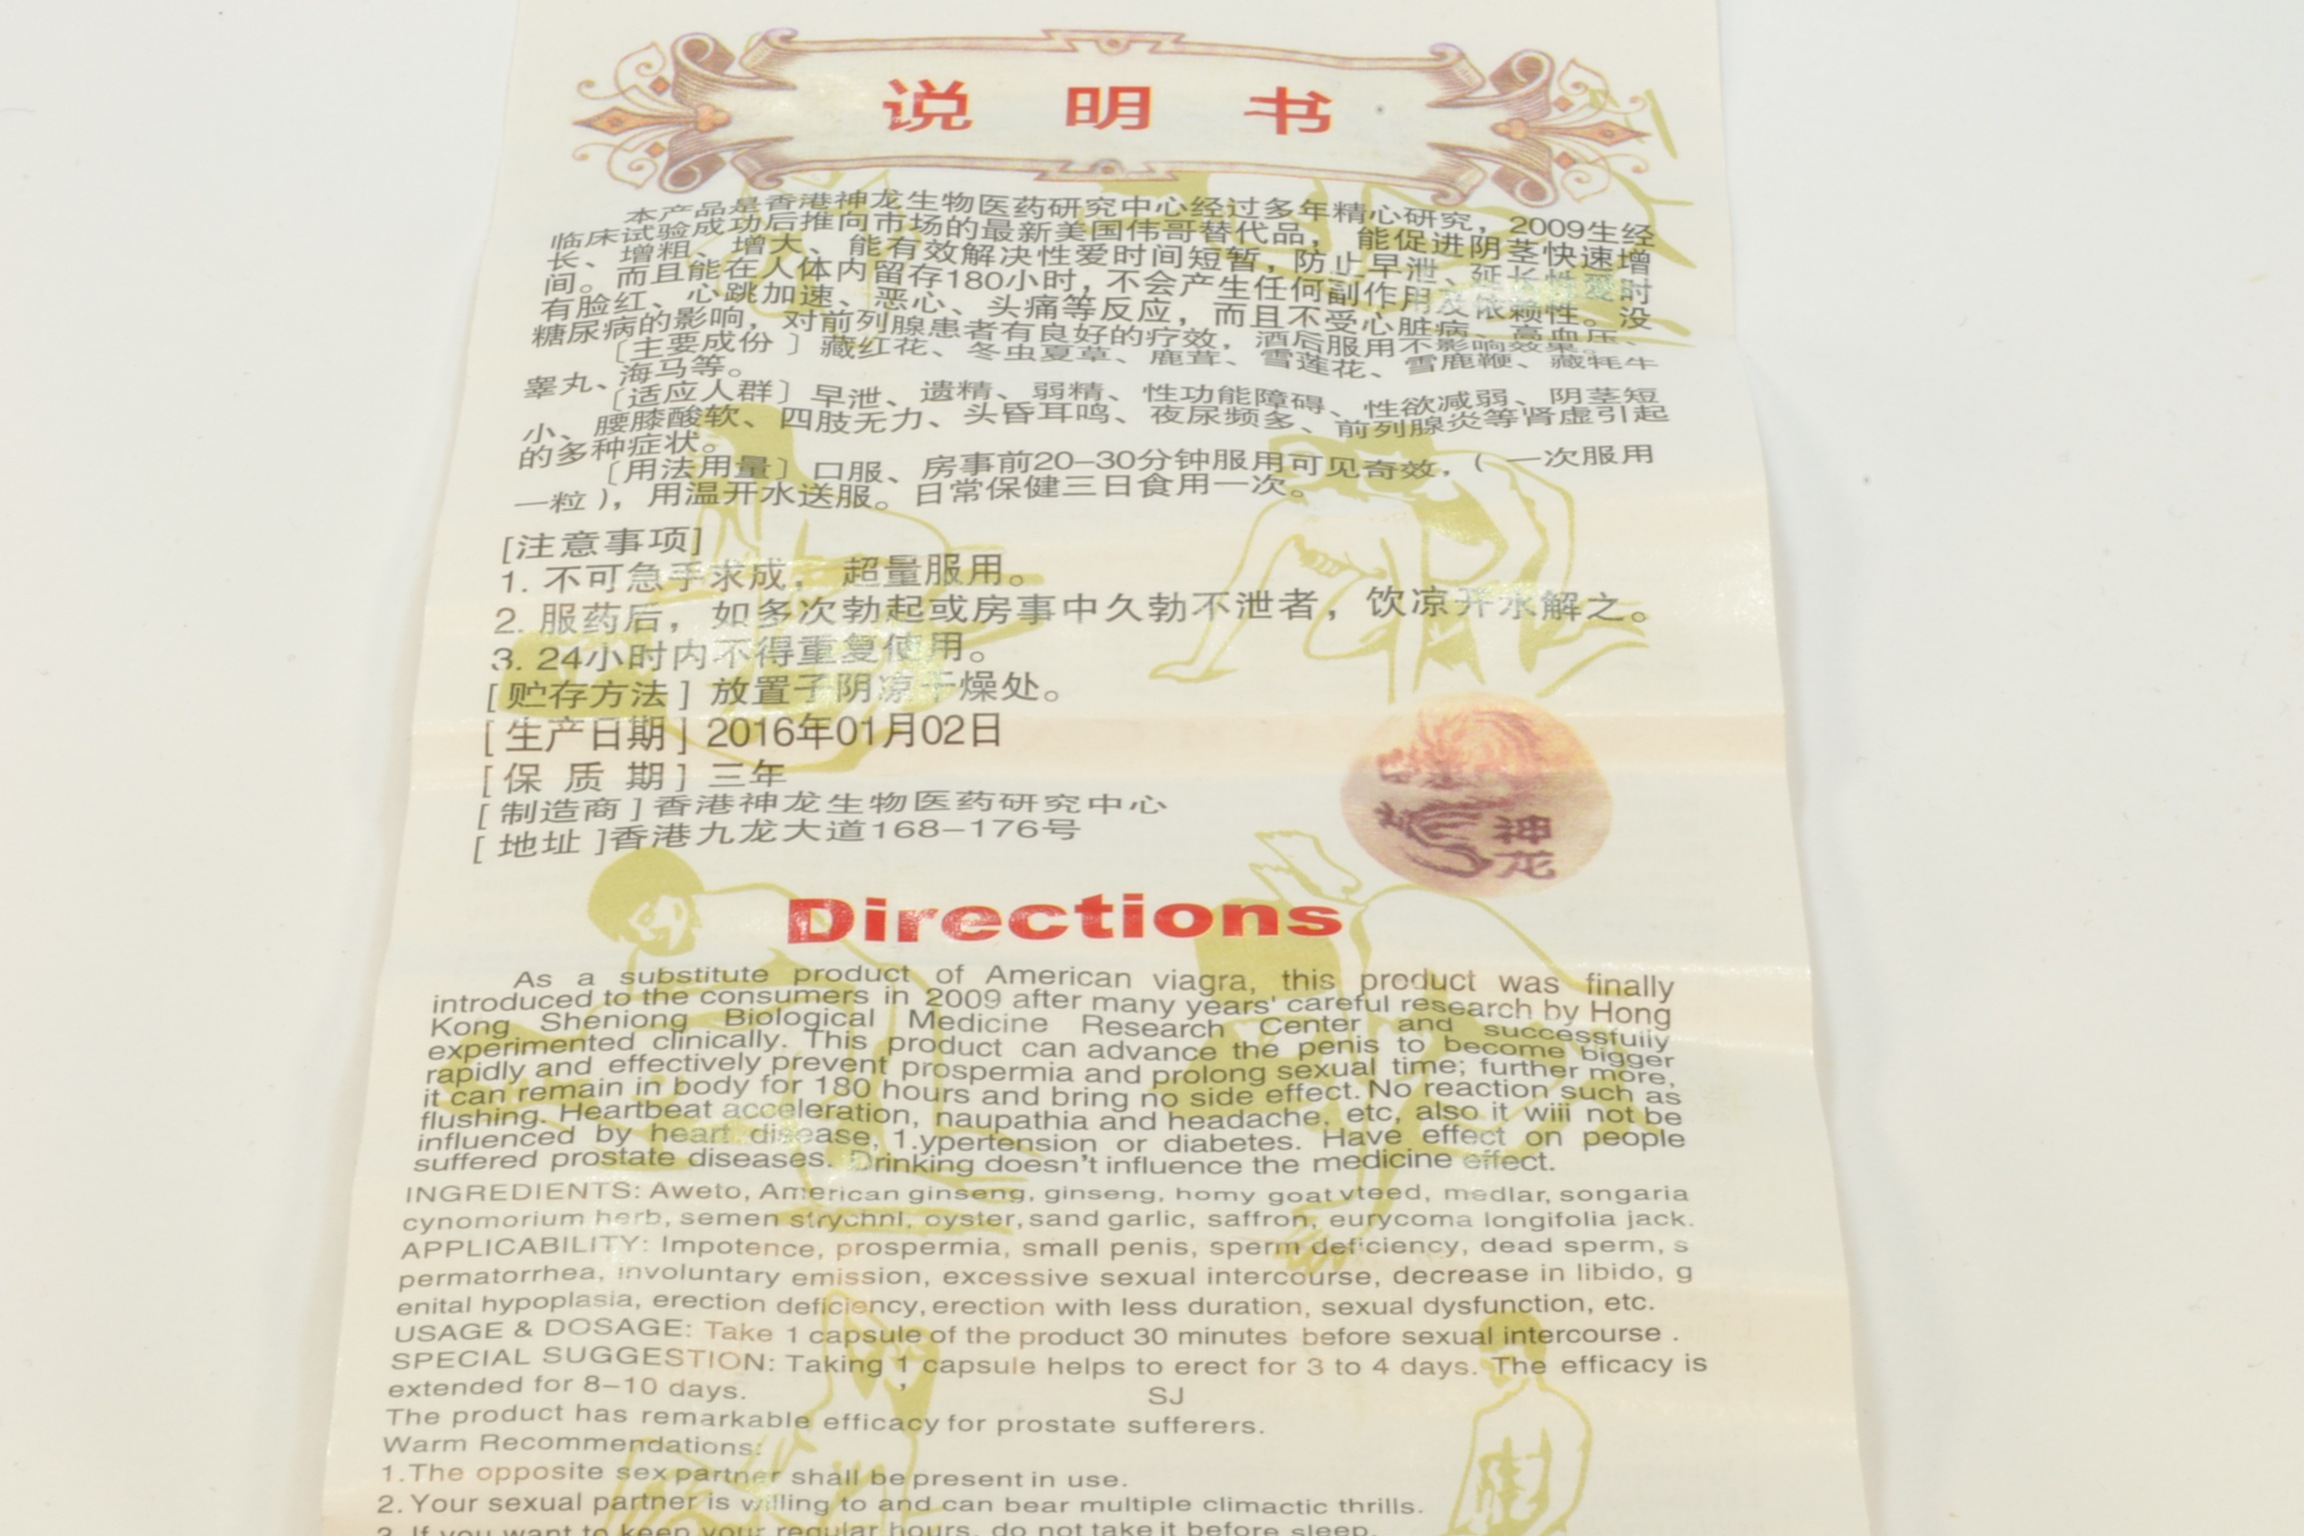 说明书
本产品是香港神龙生物医药研究中心经过多年精心研究，2009生经
临床试验成功后推向市场的最新美国伟哥替代品，能促进阴茎快速增
长、增粗、增大、能有效解决性爱时间短暂，防止早泄、延长性爱时
间。而且能在人体内留存180小时，不会产生任何副作用及依赖性。没
有脸红、心跳加速、恶心、头痛等反应，而且不受心脏病、高血压、
糖尿病的影响，对前列腺患者有良好的疗效，酒后服用不影响效果。
〔主要成份〕藏红花、冬虫夏草、鹿茸、雪莲花、雪鹿鞭、藏牦牛
睾丸、海马等。
〔适应人群〕早泄、遗精、弱精、性功能障碍、性欲减弱、阴茎短
小、腰膝酸软、四肢无力、头昏耳鸣、夜尿频多、前列腺炎等肾虚引起
的多种症状。
〔用法用量〕口服、房事前20-30分钟服用可见奇效，（一次服用
一粒），用温开水送服。日常保健三日食用一次。
[注意事项]
1. 不可急于求成， 超量服用。
2. 服药后，如多次勃起或房事中久勃不泄者，饮凉开水解之。
3. 24小时内不得重复使用。
[贮存方法] 放置子阴凉干燥处。
[生产日期] 2016年01月02日
[保 质 期] 三年
[制造商] 香港神龙生物医药研究中心
[地址]香港九龙大道168-176号
神龙
Directions
As a substitute product of American viagra, this product was finally
introduced to the consumers in 2009 after many years' careful research by Hong
Kong Sheniong Biological Medicine Research Center and successfully
experimented clinically. This product can advance the penis to become bigger
rapidly and effectively prevent prospermia and prolong sexual time; further more,
it can remain in body for 180 hours and bring no side effect. No reaction such as
flushing. Heartbeat acceleration, naupathia and headache, etc, also it wiii not be
influenced by heart disease, 1.ypertension or diabetes. Have effect on people
suffered prostate diseases. Drinking doesn't influence the medicine effect.
INGREDIENTS: Aweto, American ginseng, ginseng, homy goat vteed, medlar, songaria
cynomorium herb, semen strychnl, oyster, sand garlic, saffron, eurycoma longifolia jack.
APPLICABILITY: Impotence, prospermia, small penis, sperm deficiency, dead sperm, s
permatorrhea, involuntary emission, excessive sexual intercourse, decrease in libido, g
enital hypoplasia, erection deficiency, erection with less duration, sexual dysfunction, etc.
USAGE & DOSAGE: Take 1 capsule of the product 30 minutes before sexual intercourse .
SPECIAL SUGGESTION: Taking 1 capsule helps to erect for 3 to 4 days. The efficacy is
extended for 8-10 days.
SJ
The product has remarkable efficacy for prostate sufferers.
Warm Recommendations:
1.The opposite sex partner shall be present in use.
2. Your sexual partner is willing to and can bear multiple climactic thrills.
3. If you want to keep your regular hours, do not take it before sleep.